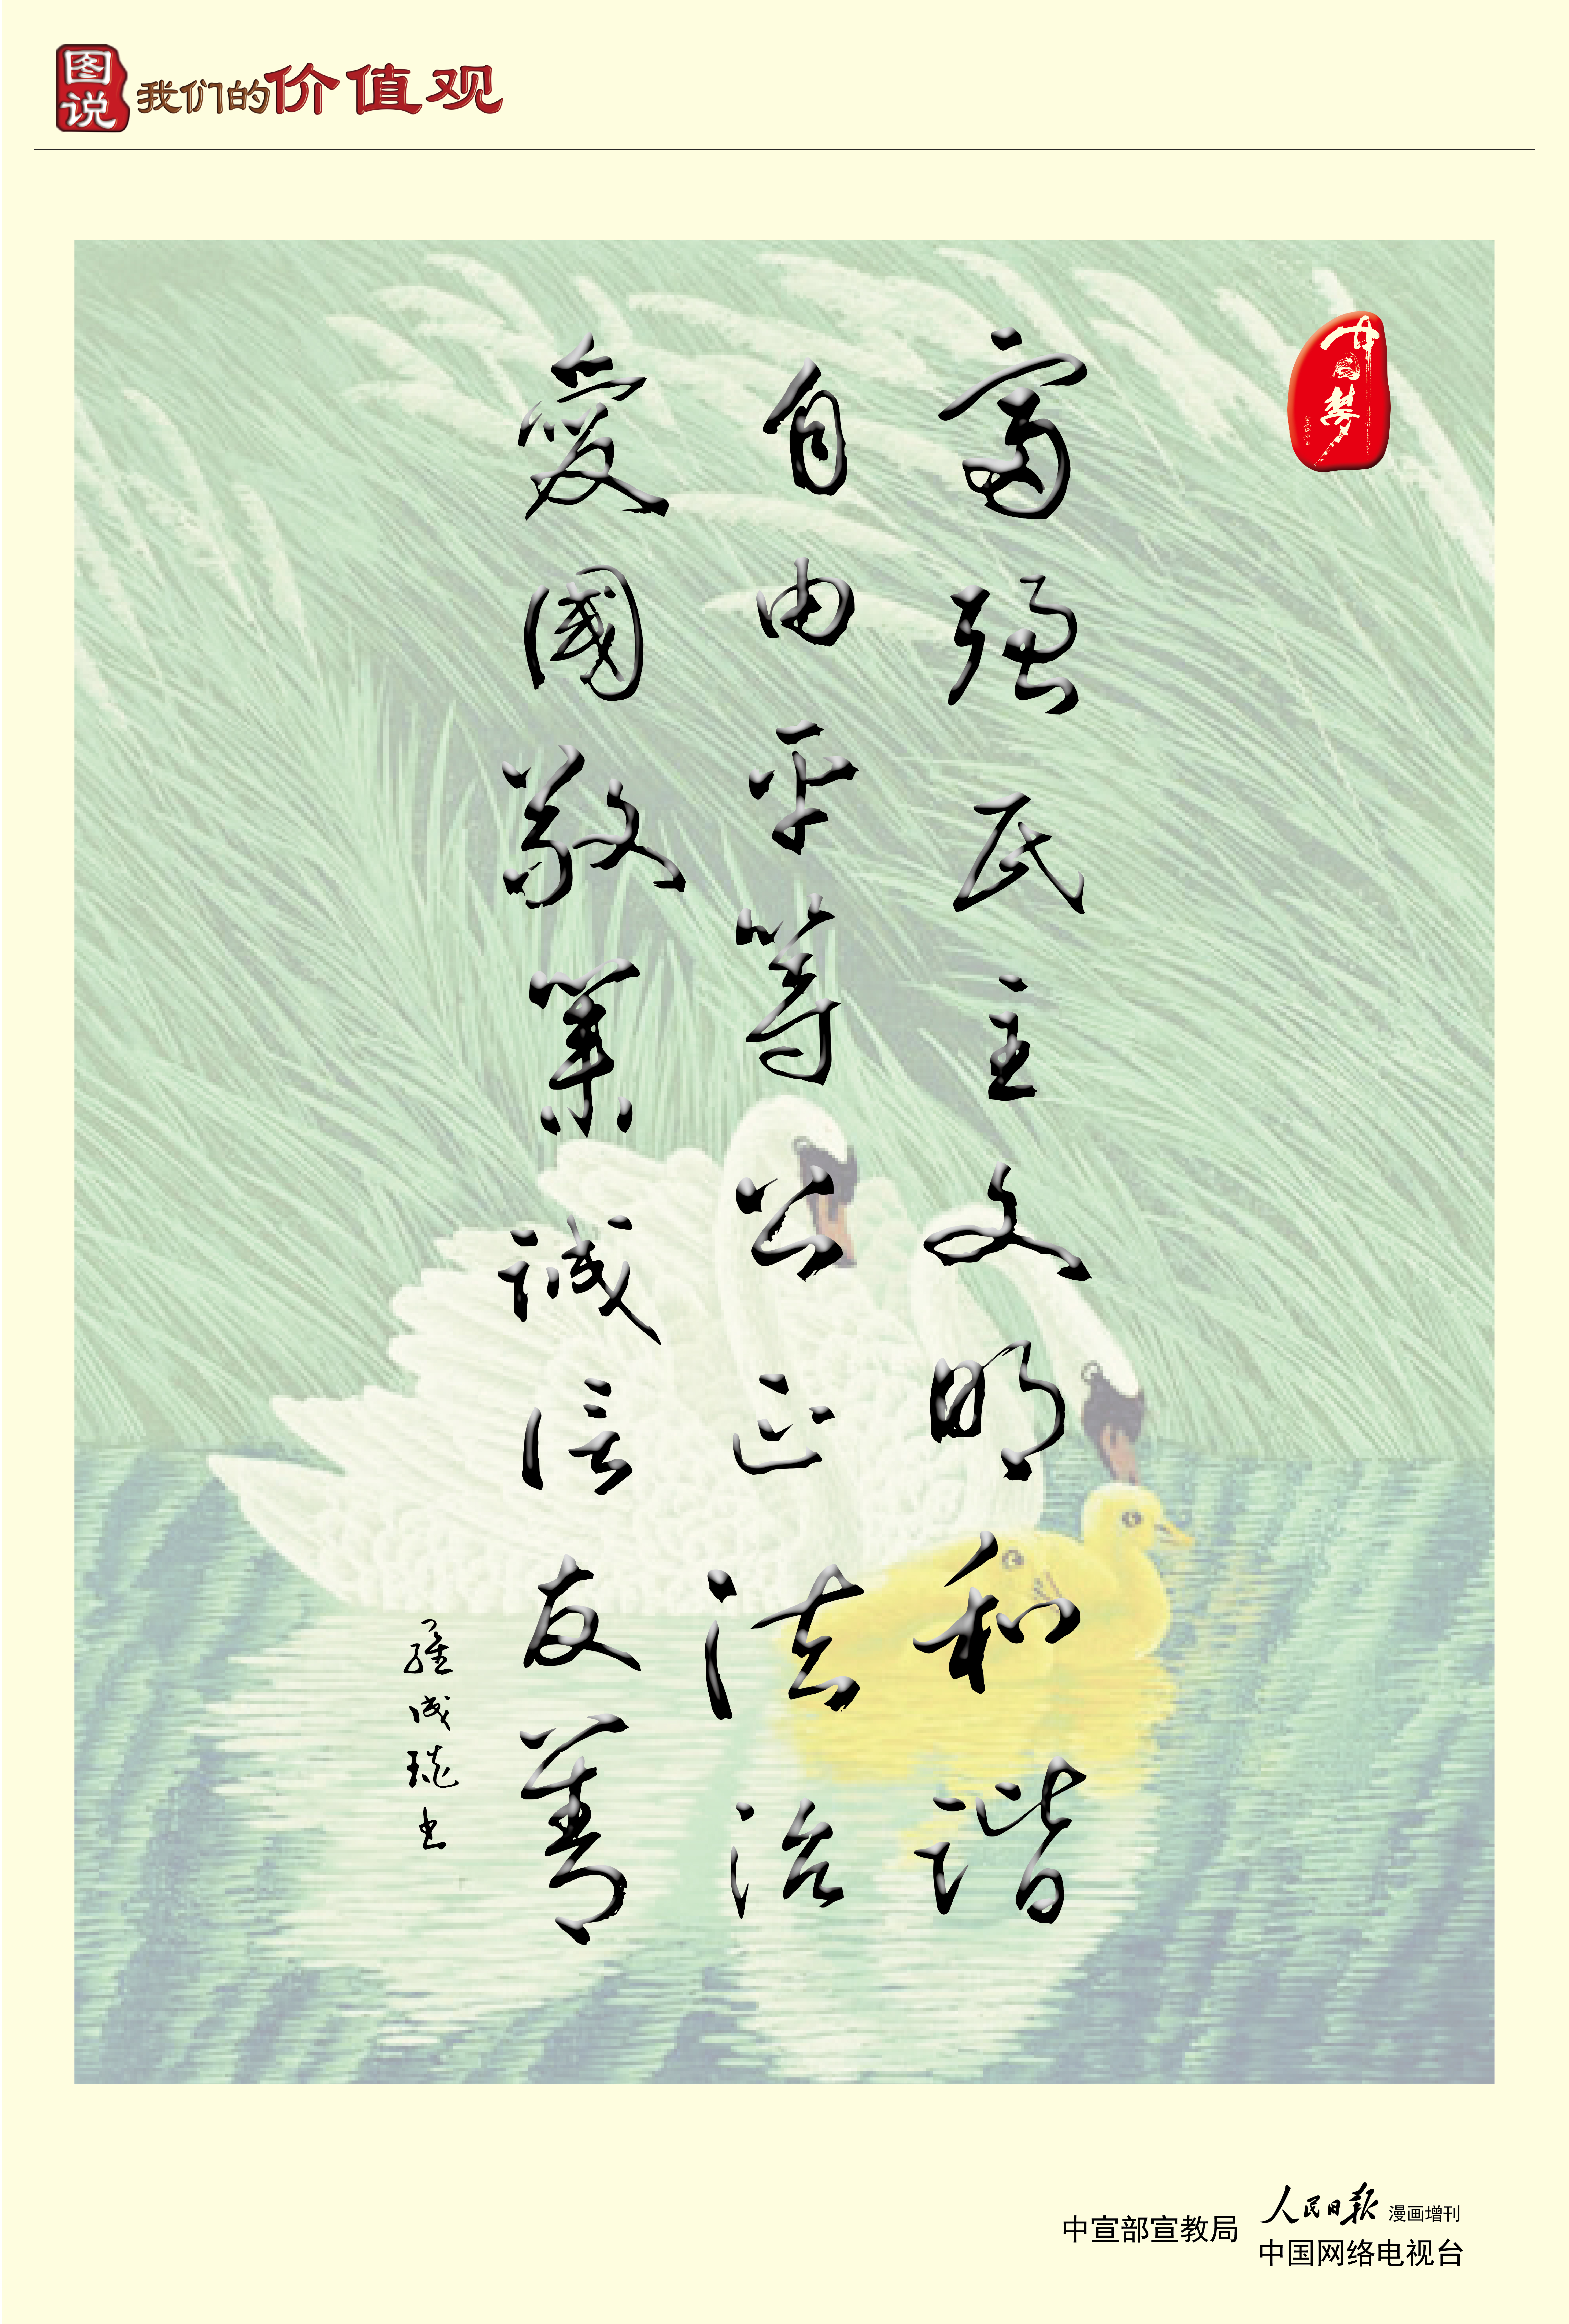 图说我们的价值观
中国梦
富强民主文明和谐
自由平等公正法治
愛國敬業誠信友善
羅成琰书
中宣部宣教局
人民日报 漫画增刊
中国网络电视台